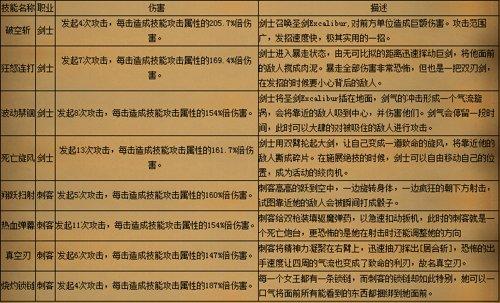 技能名称 职业 伤害 描述
破空斩 剑士 发起4次攻击，每击造成技能攻击属性的205.7%倍伤害。 剑士召唤圣剑Excalibur,对前方单位造成巨额伤害。攻击范围广，发招速度快，极其实用的一招。
狂怒连斩 剑士 发起7次攻击，每击造成技能攻击属性的169.4%倍伤害。 剑士进入暴走状态，由无可比拟的距离迅速挥动巨剑，将他面前的敌人搅成肉泥。暴走全部伤害非常恐怖，但也是一把双刃剑，在发招的时候要小心背后的敌人。
波动禁锢 剑士 发起8次攻击，每击造成技能攻击属性的154%倍伤害。 剑士将圣剑Excalibur插在地面，剑气的冲击形成一个气流旋涡，会将靠近的敌人吸到中心，并伤害他们。剑气会停留一段时间，此时可以大肆的对被吸住的敌人进行攻击。
死亡旋风 剑士 发起13次攻击，每击造成技能攻击属性的161.7%倍伤害。 剑士用双臂抡起大剑，让自己变成一道致命的旋风，将靠近他的敌人撕成碎片。在施展绝技的时候，剑士可以自由移动自己的位置，成为活动的绞肉机。
翔跃扫射 刺客 发起5次攻击，每击造成技能攻击属性的160%倍伤害。 刺客高高的跃到空中，一边旋转身体，一边疯狂的朝下方射击，试图靠近她的敌人会被瞬间打成骰子。
热血弹幕 刺客 发起11次攻击，每击造成技能攻击属性的154%倍伤害。 刺客给双枪装填驱魔弹药，以急速扣动扳机，此时的刺客就是一个死亡炮台，更恐怖的是她在射击时还能调整她的方向
真空刃 刺客 发起6次攻击，每击造成技能攻击属性的147%倍伤害。 刺客将精神力凝聚在右臂上，迅速抽刀挥出[居合斩]，恐怖的出手速度让四周的气流也变成了致命的利刃，故名真空刃。
焼灼锁链 刺客 发起4次攻击，每击造成技能攻击属性的187%倍伤害。 每一个女王都有一条锁链，而刺客的锁链却如此特别，她可以一口气将面前所有能看到的东西都捆绑到她面前。